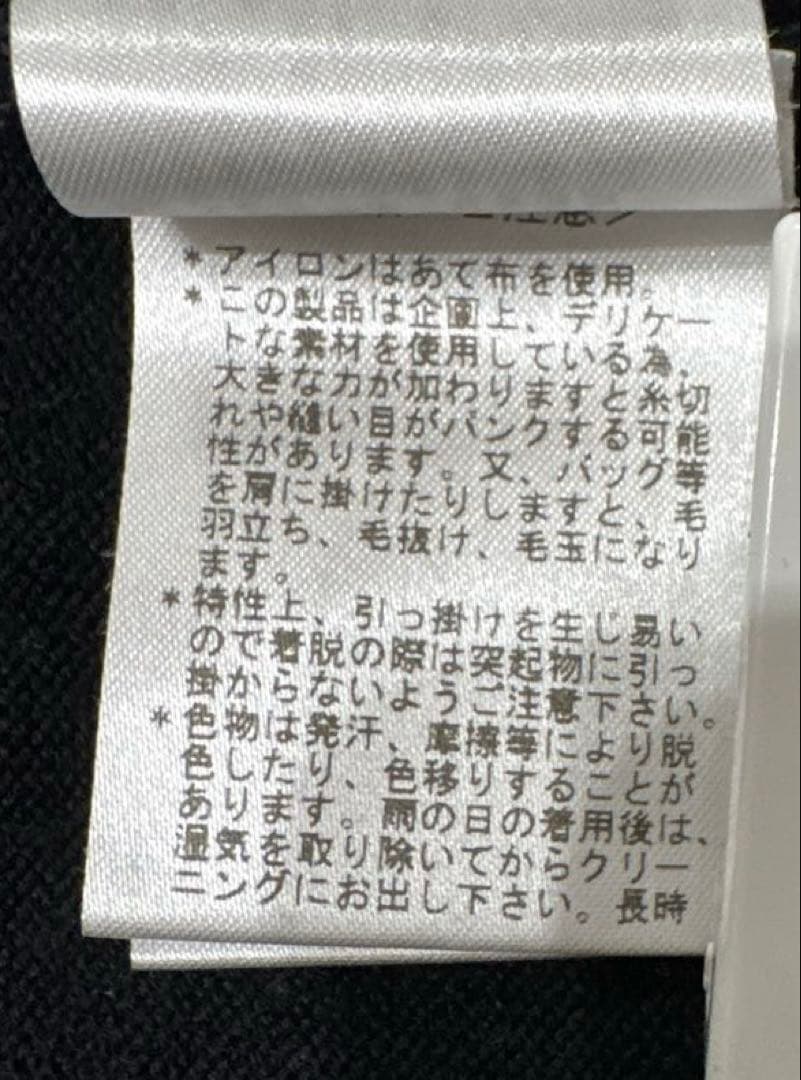 ご注意
＊アイロンはあて布を使用。
＊この製品は企画上、デリケー
トな素材を使用している為、
大きな力が加わりますと糸切
れや縫い目がパンクする可能
性があります。又、バッグ等
を肩に掛けたりしますと、毛
羽立ち、毛抜け、毛玉になり
ます。
＊特性上、引っ掛けを生じ易い
ので着脱の際は突起物に引っ
掛からないようご注意下さい。
＊色物は発汗、摩擦等により脱
色したり、色移りすることが
あります。雨の日の着用後は、
湿気を取り除いてからクリー
ニングにお出し下さい。長時